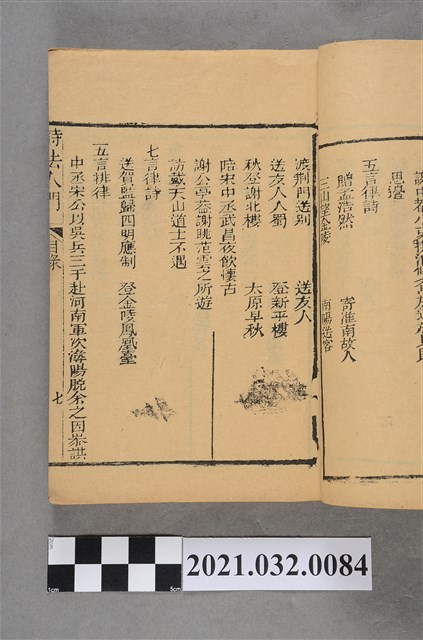 思邊
五言律詩
贈孟浩然 寄淮南故人
三山望金陵 南陽送客
渡荆門送別 送友人
送友人入蜀 登新平樓
秋登謝北樓 太原早秋
陪宋中丞武昌夜飲懷古
謝公亭蓋謝眺范雲之所遊
訪戴天山道士不遇
七言律詩
送賀監歸四明應制 登金陵鳳凰臺
五言排律
中丞宋公以吳兵三千赴河南軍次潯陽脫余之囚參謀
詩法入門 目錄 七
2021.032.0084
1cm
5cm